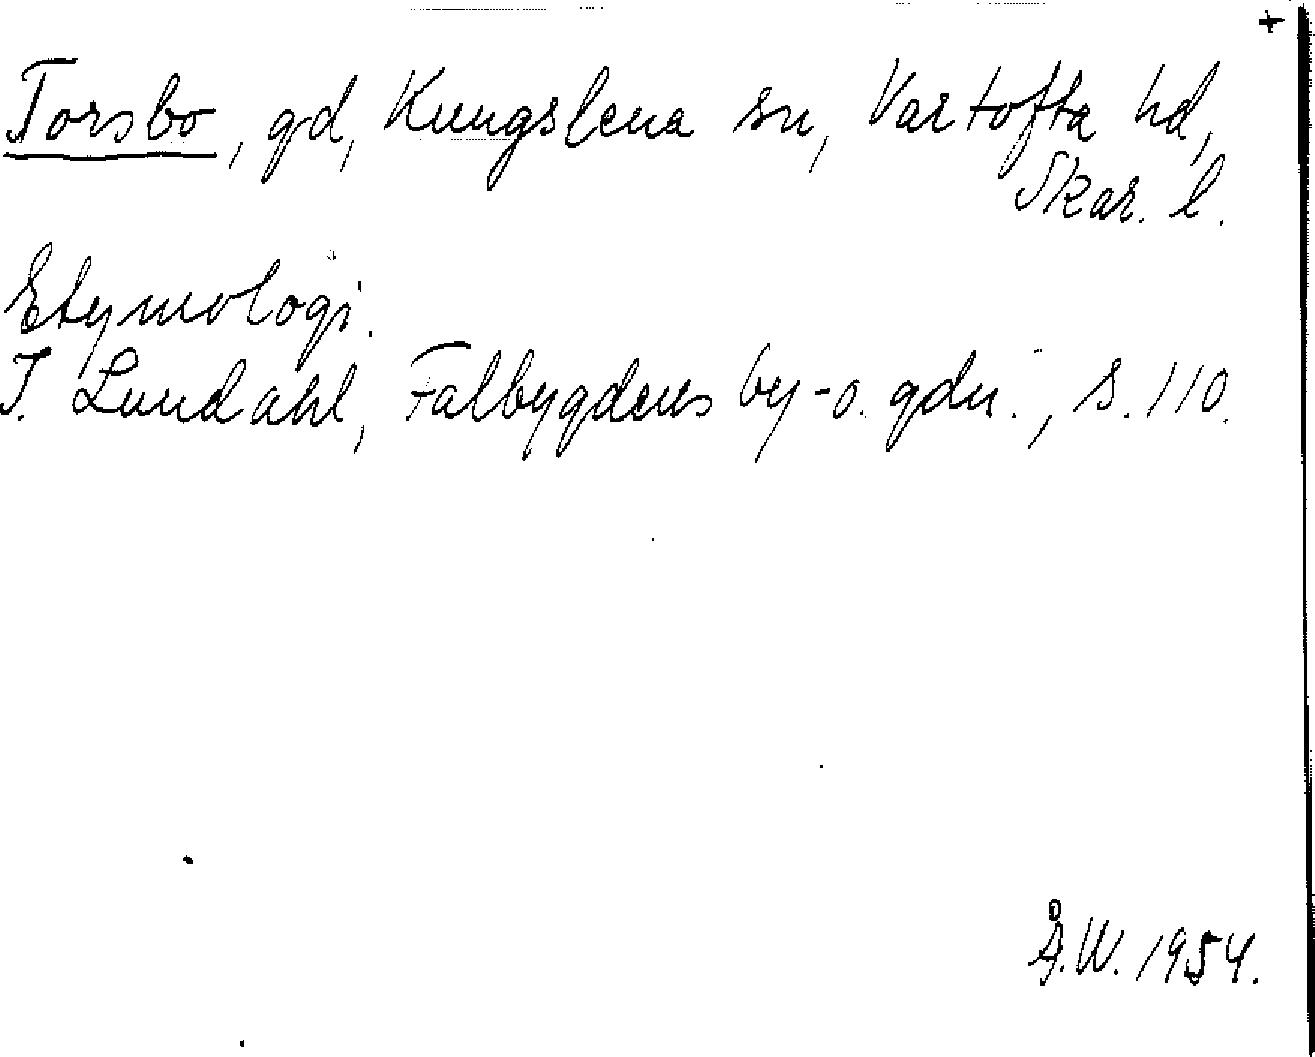 +
Torsbo, gd, Kungslena sn, Vartofta hd,
Skar. l.
Etymologi.
I. Lundahl, Falbygdens by- o. gdn., s. 110.
Å.W. 1954.